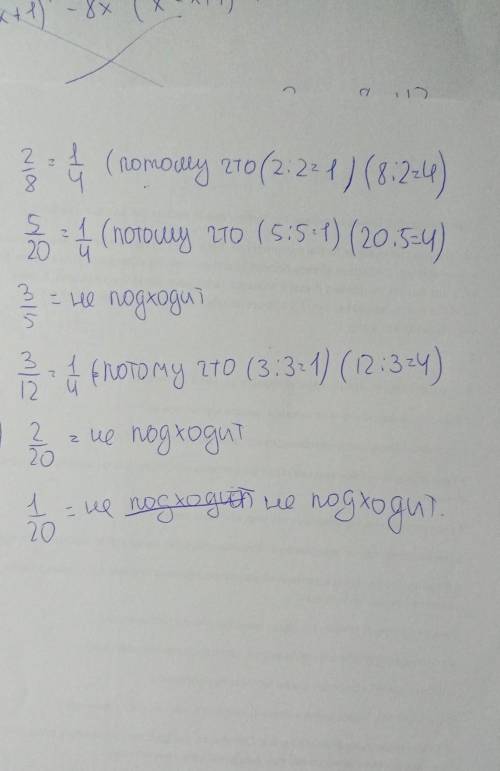 x+1) - 8x (x
2/8 = 1/4 (потому что (2:2=1) (8:2=4)
5/20 = 1/4 (потому что (5:5=1) (20:5=4)
3/5 = не подходит
3/12 = 1/4 (потому что (3:3=1) (12:3=4)
2/20 = не подходит
1/20 = не подходит не подходит.